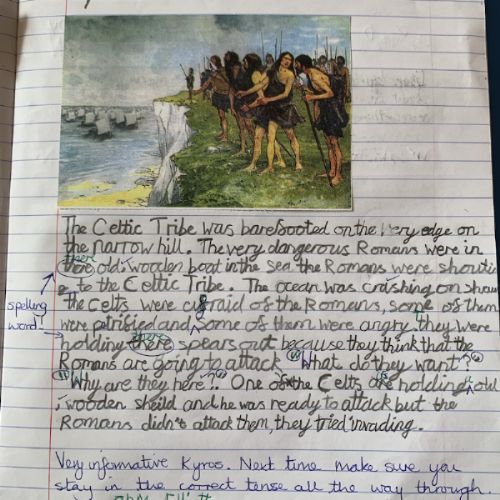 The Celtic Tribe was barefooted on the very edge on
the narrow hill. The very dangerous Romans were in
their
there old, wooden boat in the sea. the Romans were shoutin
g to the Celtic Tribe. The ocean was crashing on shore
spelling
word!
The Celts were afraid of the Romans, some of them
were petrified and some of them were angry. they were
holding there spears out because they think that the
Romans are going to attack. "What do they want"?
"Why are they here"? One of the Celts is holding old
, wooden sheild and he was ready to attack but the
Romans didn't attack them, they tried invading.
Very informative Kyros. Next time make sure you
stay in the correct tense all the way through.